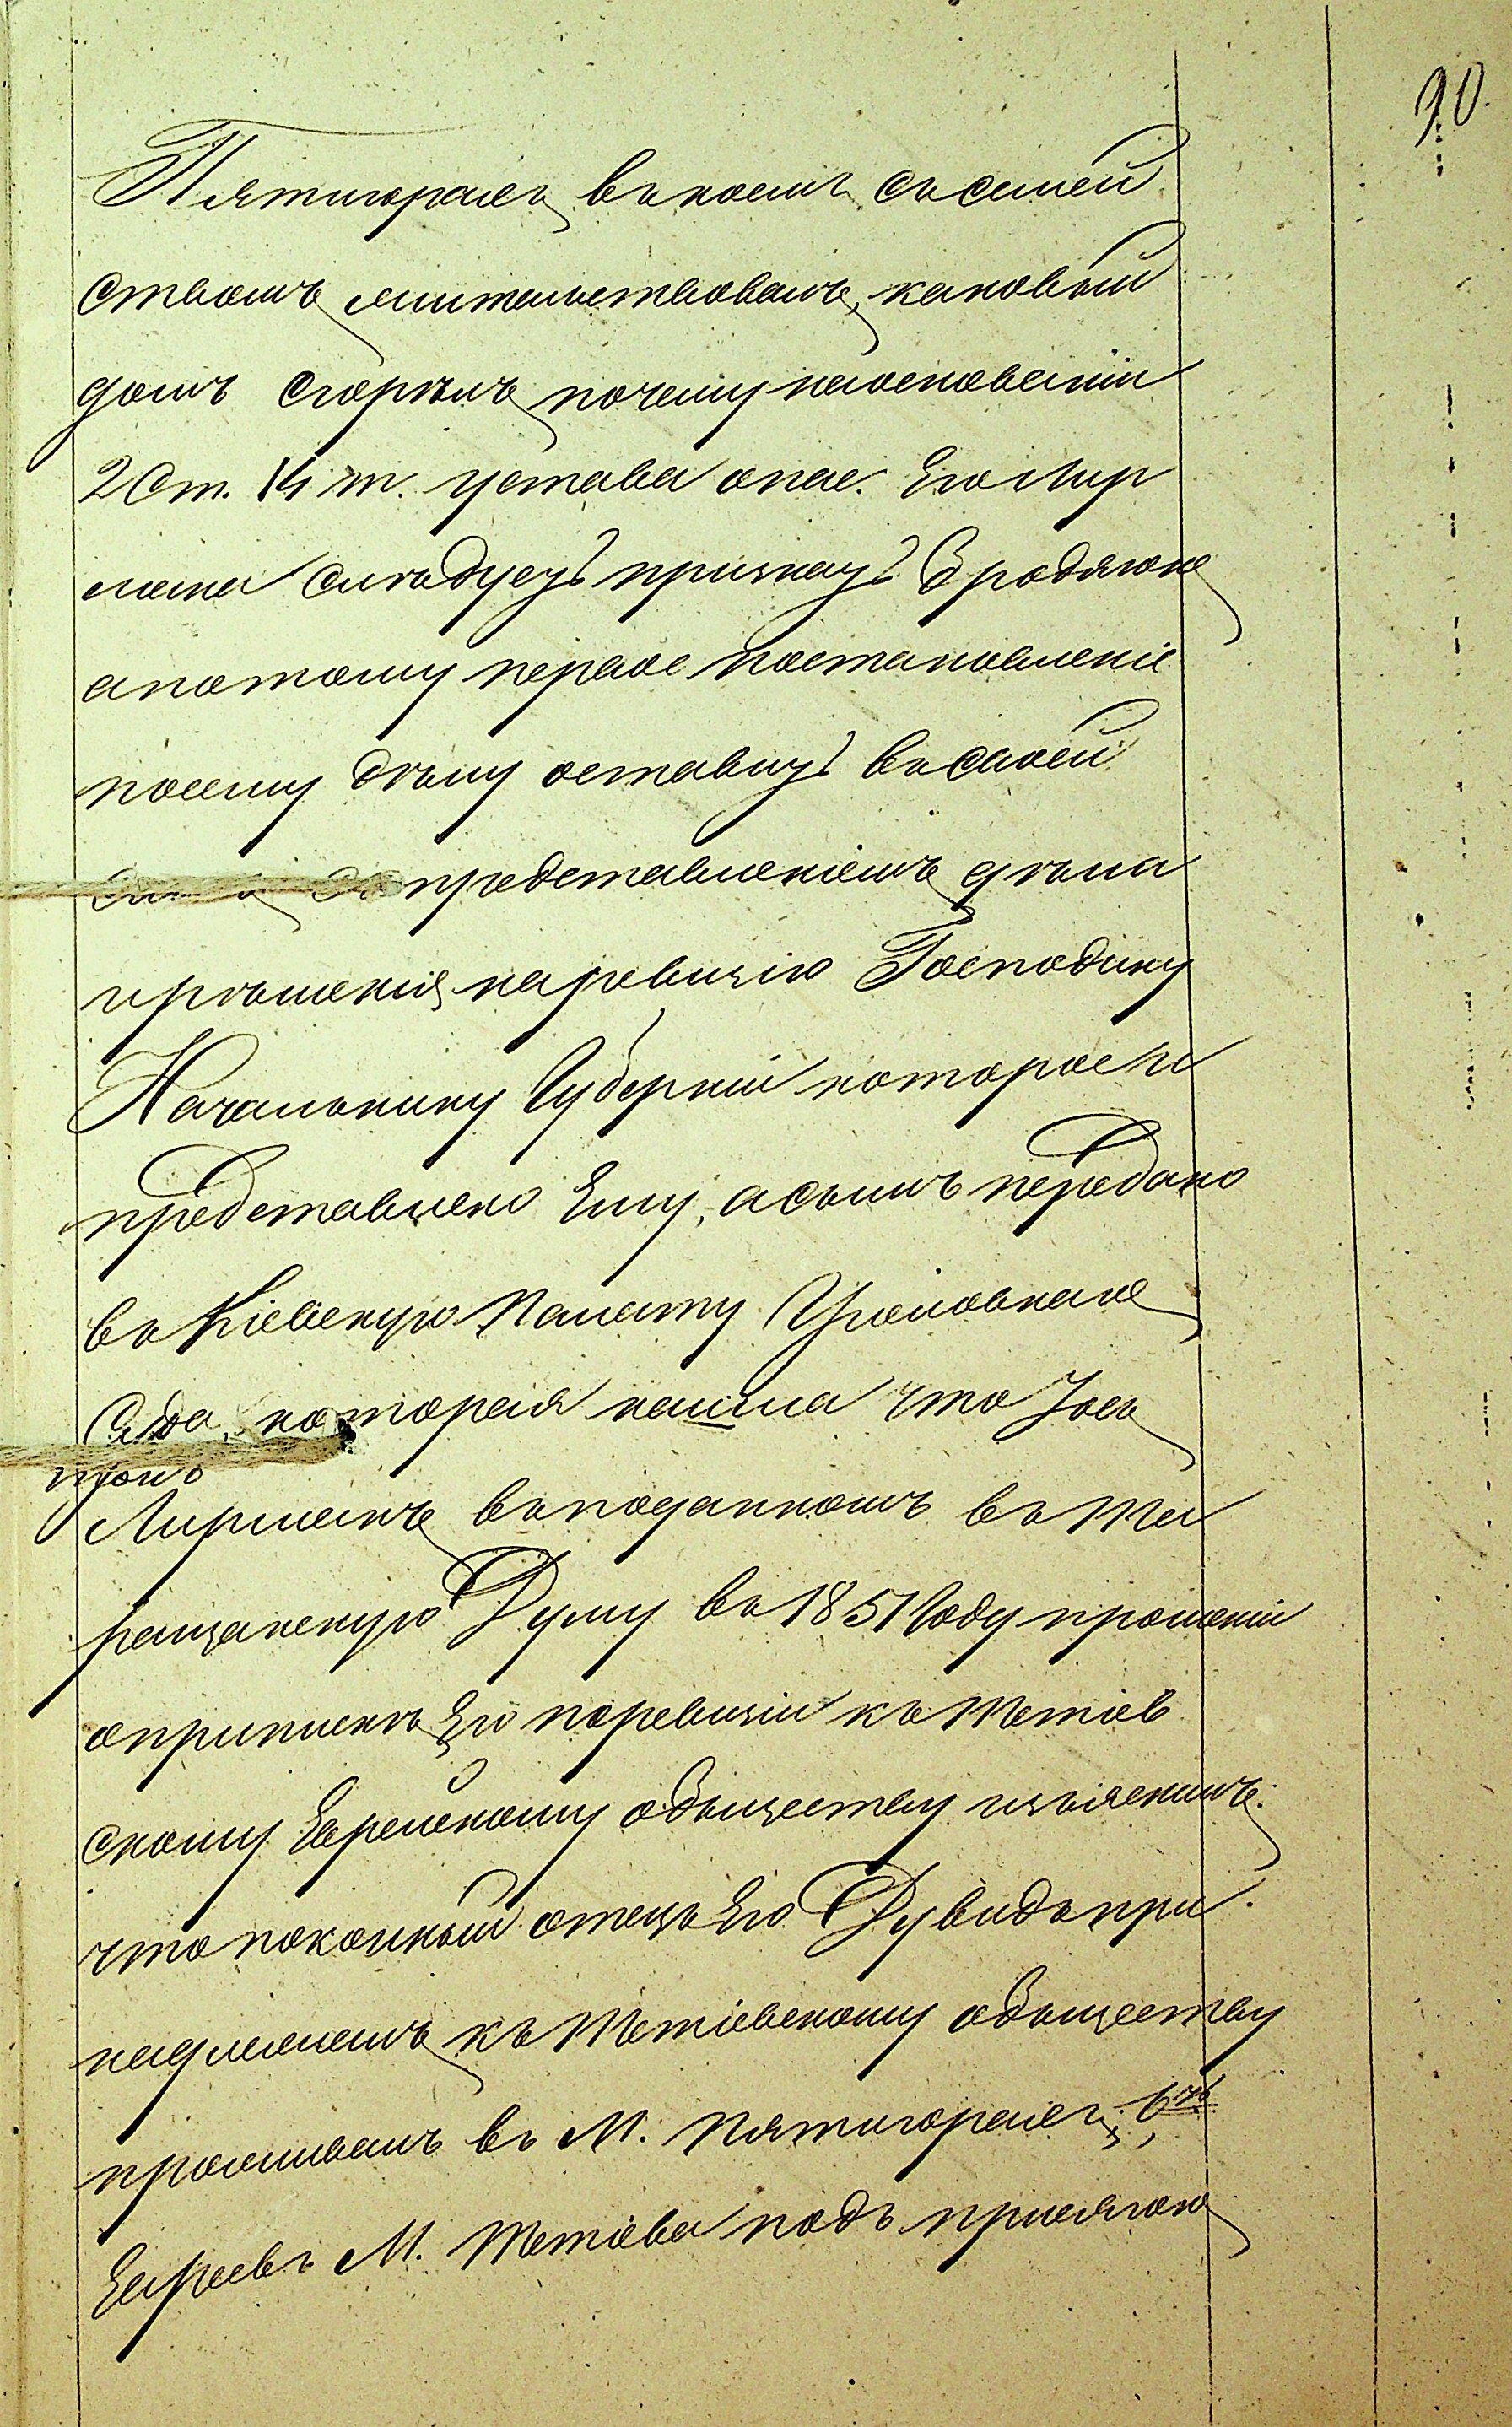 90.
Пятигорахъ въ коемъ съ семей
ствомъ жительствовалъ, каковый
домъ сгорѣлъ почему на основаніи
2 ст. 14 т. устава о пас. Его Лир
мана слѣдуетъ признать Бродягою
а потому первое постановленіе
по сему дѣлу оставить въ своей
представленіемъ дѣла
и рѣшенія на ревизію Господину
Начальнику Губерніи которое и
представлено Ему, а симъ передано
въ Кіевскую Палату Уголовнаго
Суда, которая нашла что Іось
Лирманъ въ поданномъ въ Та
ращанскую Думу въ 1851 Году прошеніи
о припискѣ Его по ревизіи къ Тетіев
скому Еврейскому обществу изъяснилъ:
что покойный отецъ Его Дувидъ при
надлежалъ къ Тетіевскому обществу
проживалъ въ М. Пятигорахъ, 6ть
Евреевъ М. Тетіева подъ присягою